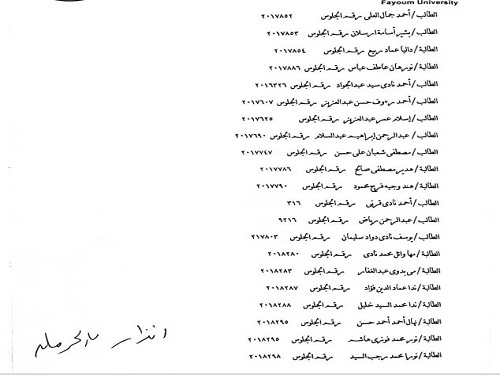 Fayoum University
الطالب/أحمد جمال العلى رقم الجلوس ٢٠١٧٨٥٢
الطالب/بشير أسامة ارسلان رقم الجلوس ٢٠١٧٨٥٣
الطالبة/داليا عماد ربيع رقم الجلوس ٢٠١٧٨٥٤
الطالبة/نورهان عاطف عباس رقم الجلوس ٢٠١٧٨٨٦
الطالب/أحمد نادى سيد عبدالجواد رقم الجلوس ٢٠١٦٣٢٦
الطالب/أحمد رءوف حسن عبدالعزيز رقم الجلوس ٢٠١٧٦٠٧
الطالب/إسلام عمر عبدالعزيز رقم الجلوس ٢٠١٧٦٢٥
الطالب/عبدالرحمن إبراهيم عبدالسلام رقم الجلوس ٢٠١٧٦٩٠
الطالب/مصطفى شعبان على حسن رقم الجلوس ٢٠١٧٧٤٧
الطالبة/هدير مصطفى صالح رقم الجلوس ٢٠١٧٧٨٦
الطالبة/هند وجيه فرج محمود رقم الجلوس ٢٠١٧٧٩٠
الطالب/أحمد نادى قرنى رقم الجلوس ٣١٦
الطالب/عبدالرحمن رياض رقم الجلوس ٩٢١٦
الطالب/يوسف نادى دواد سليمان رقم الجلوس ٢١٧٨٠٣
الطالبة/مها وائل محمد نادى رقم الجلوس ٢٠١٨٢٨٠
الطالبة/مى بدوى عبدالغفار رقم الجلوس ٢٠١٨٢٨٣
الطالبة/ندا عماد الدين فؤاد رقم الجلوس ٢٠١٨٢٨٧
الطالبة/ندا محمد السيد خليل رقم الجلوس ٢٠١٨٢٨٨
الطالبة/نهال أحمد أحمد حسن رقم الجلوس ٢٠١٨٢٩٥
الطالبة/نور محمد فوزى هاشم رقم الجلوس ٢٠١٨٢٩٥
الطالبة/نورا محمد رجب السيد رقم الجلوس ٢٠١٨٢٩٨
انذار